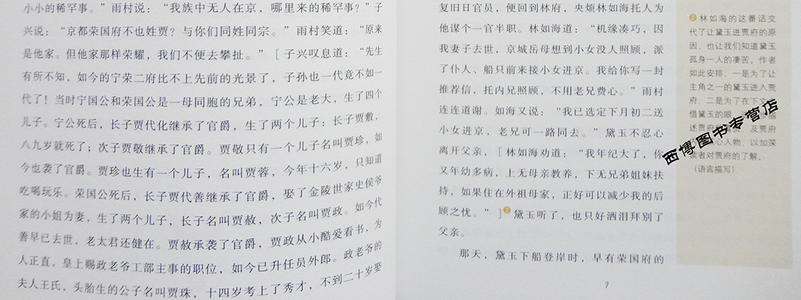 小小的稀罕事？”雨村说：“我族中无人在京，哪里来的稀罕事？”子
兴说：“京都荣国府不也姓贾？与你们同姓同宗。”雨村笑道：“原来
是他家。但他家那样荣耀，我们不便去攀扯。”［子兴叹息道：“先生
有所不知，如今的宁荣二府比不上先前的光景了，子孙也一代竟不如一
代了！当时宁国公和荣国公是一母同胞的兄弟，宁公是老大，生了四个
儿子。宁公死后，长子贾代化继承了官爵，生了两个儿子：长子贾敷，
八九岁就死了；次子贾敬继承了官爵。贾敬只有一个儿子名叫贾珍，如
今也袭了官爵。贾珍也生有一个儿子，名叫贾蓉，今年十六岁，只知道
吃喝玩乐。荣国公死后，长子贾代善继承了官爵，娶了金陵世家史侯爷
家的小姐为妻，生了两个儿子，长子名叫贾赦，次子名叫贾政。如今代
善早已去世，老太君还健在。贾赦承袭了官爵，贾政从小酷爱看书，为
人正直，皇上赐政老爷工部主事的职位，如今已升任员外郎。政老爷的
夫人王氏，头胎生的公子名叫贾珠，十四岁考上了秀才，不到二十岁娶
复旧日官员，便回到林府，央烦林如海托人为
他谋个一官半职。林如海道：“机缘凑巧，因
我妻子去世，京城岳母想到小女没人照顾，派
了仆人、船只前来接小女进京。我给你写一封
推荐信，托内兄照顾，不用老兄费心。”雨村
连连道谢。如海又说：“我已选定下月初二送
小女进京，老兄可一路同去。”黛玉不忍心
离开父亲，［林如海劝道：“我年纪大了，你
又年幼多病，上无母亲教养，下无兄弟姐妹扶
持，如果住在外祖母家，正好可以减少我的后
顾之忧。”］②黛玉听了，也只好洒泪拜别了
父亲。
那天，黛玉下船登岸时，早有荣国府的
7
②林如海的这番话交
代了让黛玉进贾府的原
因，也让我们知道黛玉
孤身一人的凄苦。作者
如此安排，一是为了让
主角之一的黛玉进入贾
府，二是为了在下文
借黛玉的眼
述贾府 及贾府
心人物，以加深
读者对贾府的了解。
（语言描写）
西博图书专营店